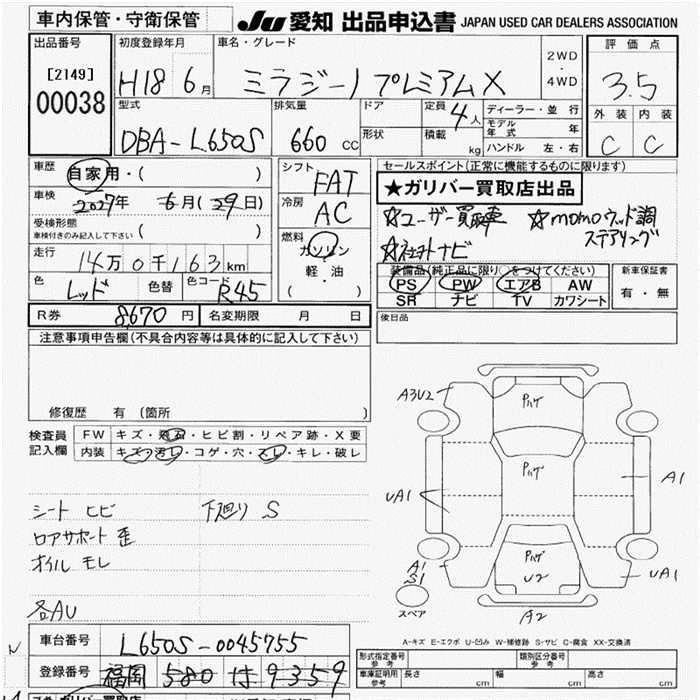 車内保管・守衛保管
JU 愛知 出品申込書 JAPAN USED CAR DEALERS ASSOCIATION
出品番号 初度登録年月 車名・グレード 2WD・4WD 評価点
[2149]
00038
H18 6月 ミラジーノ プレミアムX 3.5
型式 排気量 ドア 定員 4人 ディーラー・並行 外装 内装
モデル年式 年
DBA-L650S 660 CC 形状 積載 kg ハンドル 左・右 C C
車歴 自家用・( ) シフト FAT セールスポイント(正常に機能するものに限ります)
★ガリバー買取店出品
車検 2027年 6月(29日) 冷房 AC
☆ユーザー買取車 ☆momoウッド調ステアリング
受検形態 ( )
車検付きのみ記入して下さい
☆社外ナビ
走行 14万0千163km 燃料 ガソリン・軽・油 ( )
色 レッド 色替 色コード R45
装備品(純正品に限り○をつけてください) 新車保証書
PS PW エアB AW 有・無
SR ナビ TV カワシート
R券 8,670円 名変期限 月 日
後日品
注意事項申告欄(不具合内容等は具体的に記入して下さい)
修復歴 有 (箇所 )
検査員記入欄 FW キズ・飛石・ヒビ割・リペア跡・X要
内装 キズ・汚レ・コゲ・穴・スレ・キレ・破レ
シート ヒビ 下廻り S
ロアサポート 歪
オイル モレ
各AU
A3U2
ハ゜ハゲ
ハ゜ハゲ
UA1
A1
ハ゜ハゲ
U2
A1
S1
UA1
スペア
A2
A-キズ E-エクボ U-凹ミ W-補修跡 S-サビ C-腐食 XX-交換済
車台番号 L650S-0045755
登録番号 福岡 580 は 9359
形式指定番号 参考 類別区分番号 参考
車庫証明用 参考 長さ cm 幅 cm 高さ cm
ガリバー買取店